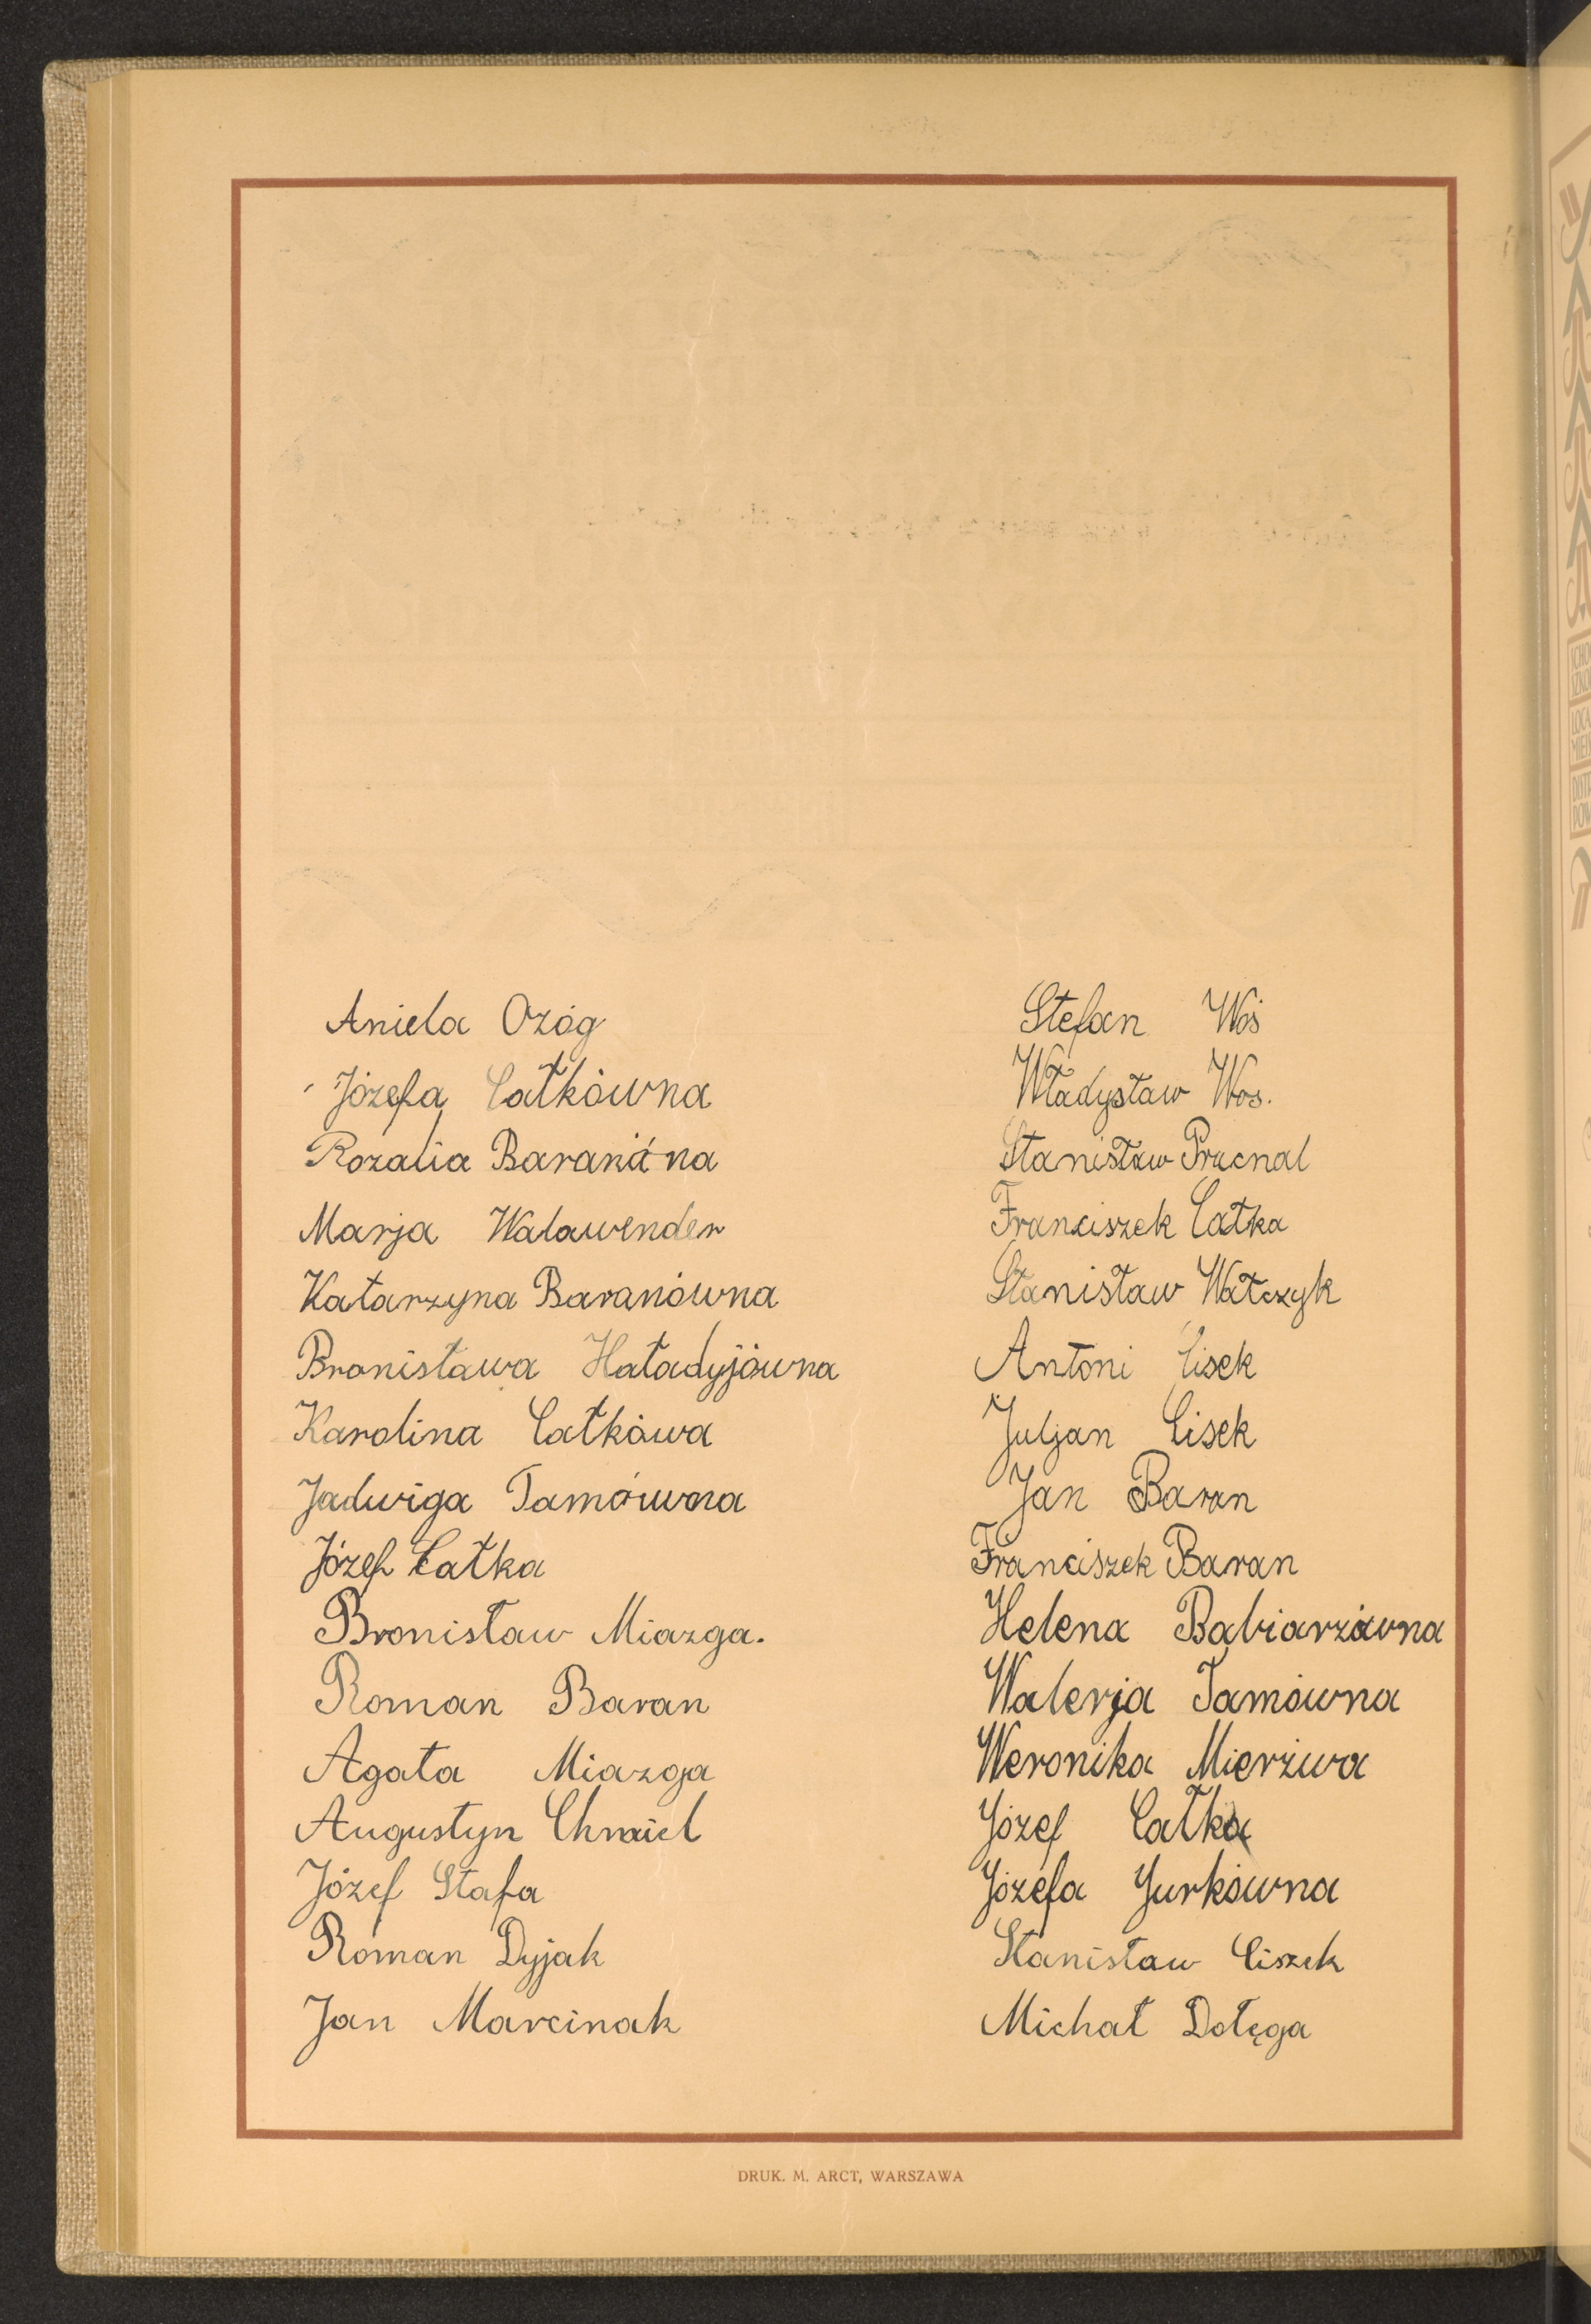 Aniela Ożóg
Józefa Całkówna
Rozalia Baranówna
Marja Walawender
Katarzyna Baranówna
Bronisława Haładyjówna
Karolina Całkówa
Jadwiga Tamówna
Józef Całka
Bronisław Miazga.
Roman Baran
Agata Miazga
Augustyn Chmiel
Józef Stafa
Roman Dyjak
Jan Marcinak
Stefan Woś
Władysław Wos.
Stanisław Pracnal
Franciszek Całka
Stanisław Watczyk
Antoni Cisek
Juljan Cisek
Jan Baran
Franciszek Baran
Helena Babiarzówna
Walerja Tamówna
Weronika Mierzwa
Józef Całka
Józefa Jurkówna
Stanisław Ciszek
Michał Dołęga
DRUK. M. ARCT, WARSZAWA